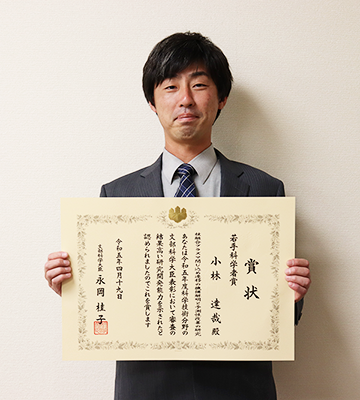 賞状
若手科学者賞
小林 達哉 殿
あなたは令和五年度科学技術分野の
文部科学大臣表彰において審査の
結果高い研究開発能力を示されたと
認められましたのでこれを賞します
令和五年四月十九日
文部科学大臣 永岡 桂子